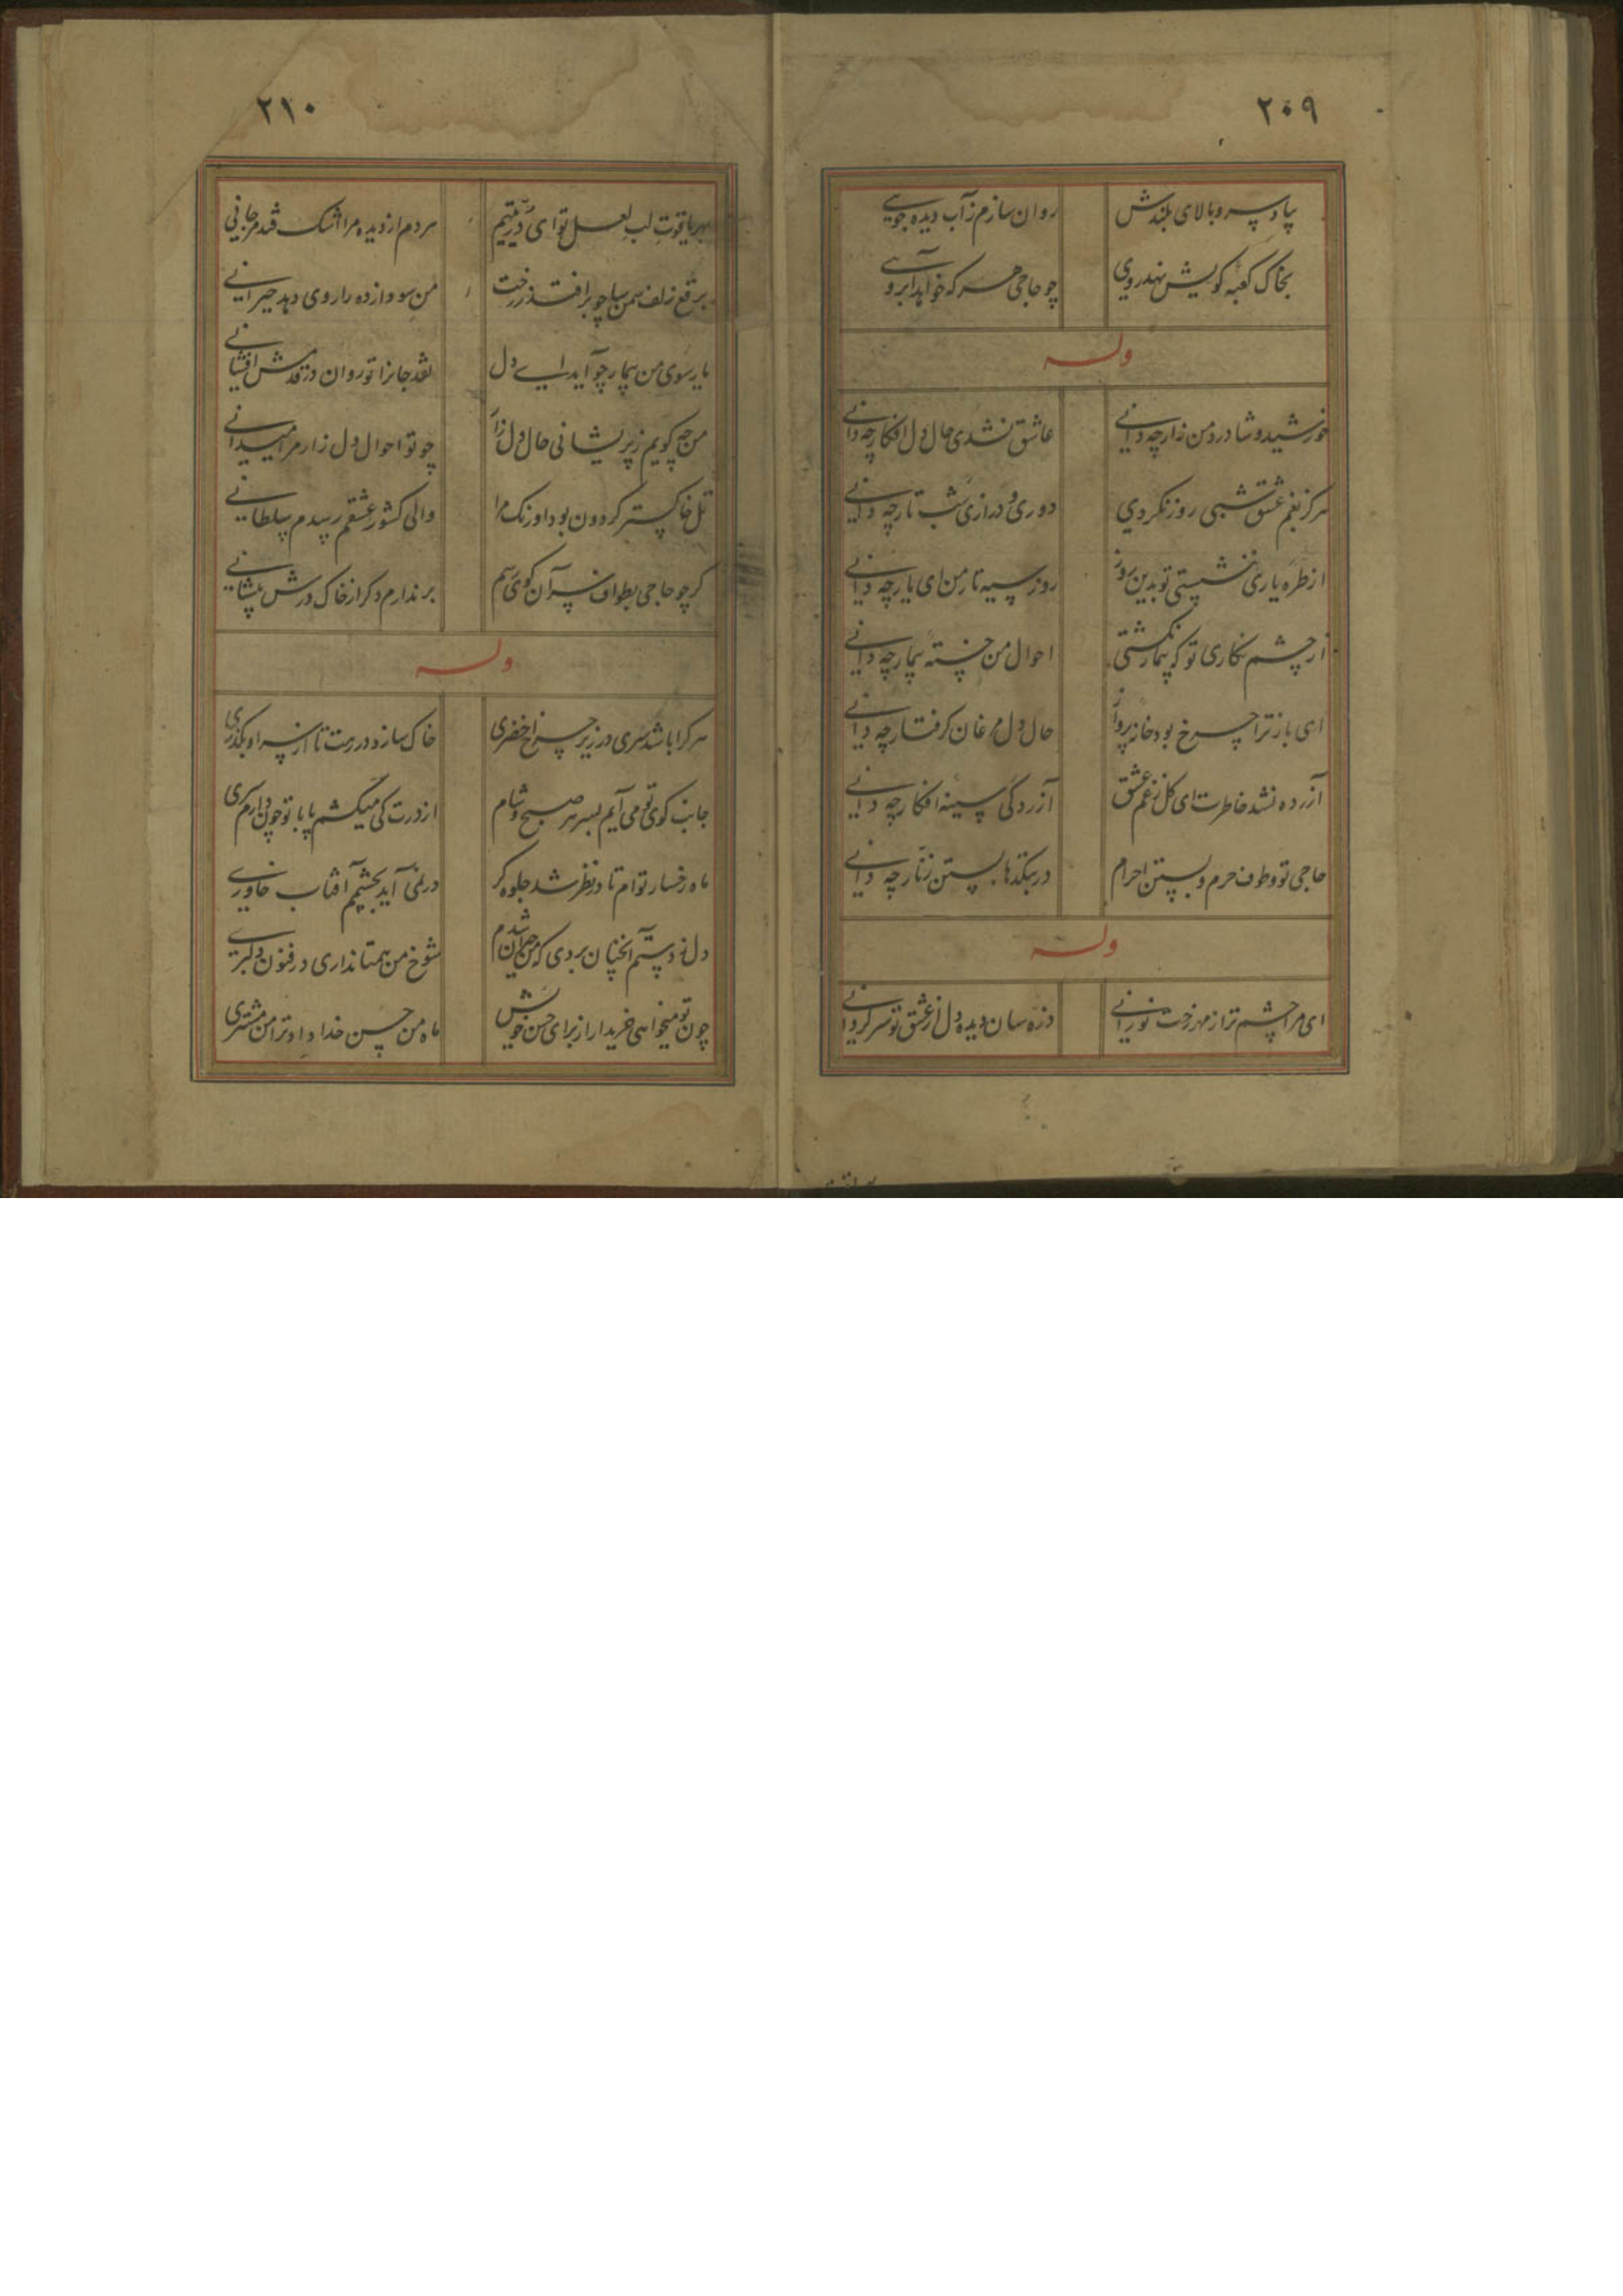 ۲۰۹
بیاد سرو بالای بلندش روان سازم ز آب دیده جویی
بخاک کعبه کویش نهد روی چو حاجی هر که خواهد آبرویی
وله
خورشیدوشا درد من زار چه دانی عاشق نشدی حال دل افکار چه دانی
هرکز بغم عشق شبی روز نکردی دوری و درازی شب تار چه دانی
از طره یاری ننشستی تو بدین روز روز سیه تار من ای یار چه دانی
از چشم نکاری تو که بیمار نکشتی احوال من خسته بیمار چه دانی
ای باز ترا چرخ بود خانه پرواز حال دل مرغان کرفتار چه دانی
آزرده نشد خاطرت ای کل ز غم عشق آزردکی سینه افکار چه دانی
حاجی تو و طوف حرم و بستن احرام در بتکدها بستن زنار چه دانی
وله
ای مرا چشم تر از مهر رخت نورانی ذره سان دیده دل از عشق تو سرکردانی
۲۱۰
بهر یاقوت لب لعل تو ای در یتیم هر دم از دیده مرا اشک فتد مرجانی
برقع زلف سمن سا چو برافتد ز رخت من سودازده را روی دهد حیرانی
یار سوی من بیمار چو آید ای دل نقد جانرا تو روان در قدمش افشانی
من چه کویم ز پریشانی حال دل زار چو تو احوال دل زار مرا میدانی
تل خاکستر کردون بود اورنک مرا والی کشور عشقم رسدم سلطانی
کر چو حاجی بطواف سر آن کوی رسم برندارم دکر از خاک درش پیشانی
وله
هر کرا باشد سری در زیر چرخ اخضری خاک سازد در رهت تا از سر او بکذری
جانب کوی تو می آیم بسر هر صبح و شام از درت کی میکشم پا با تو چون دارم سری
ماه رخسار توام تا در نظر شد جلوه کر در نمی آید بچشمم آفتاب خاوری
دل ز دستم آنچنان بردی که من حیران شدم شوخ من همتا نداری در فنون دلبری
چون تو میخواهی خریدار از برای حسن خویش ماه من حسن خداداد ترا من مشتری